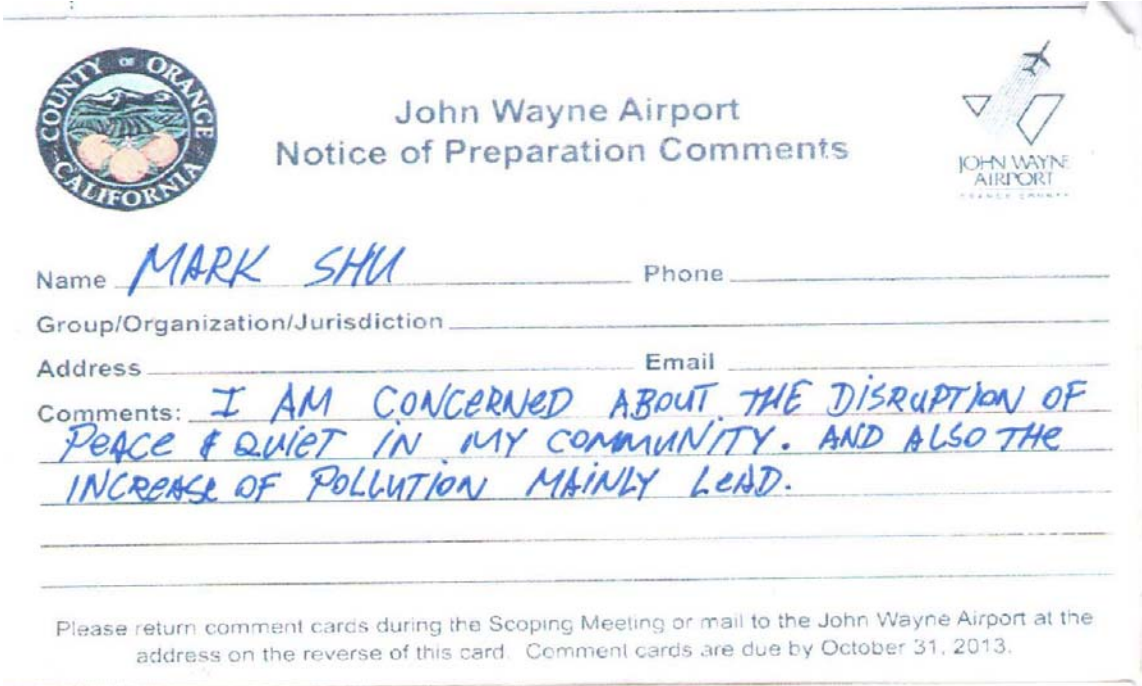 COUNTY OF ORANGE
CALIFORNIA
John Wayne Airport
Notice of Preparation Comments
JOHN WAYNE
AIRPORT
ORANGE COUNTY
Name MARK SHU Phone
Group/Organization/Jurisdiction
Address Email
Comments: I AM CONCERNED ABOUT THE DISRUPTION OF
PEACE & QUIET IN MY COMMUNITY. AND ALSO THE
INCREASE OF POLLUTION MAINLY LEAD.
Please return comment cards during the Scoping Meeting or mail to the John Wayne Airport at the
address on the reverse of this card. Comment cards are due by October 31, 2013.